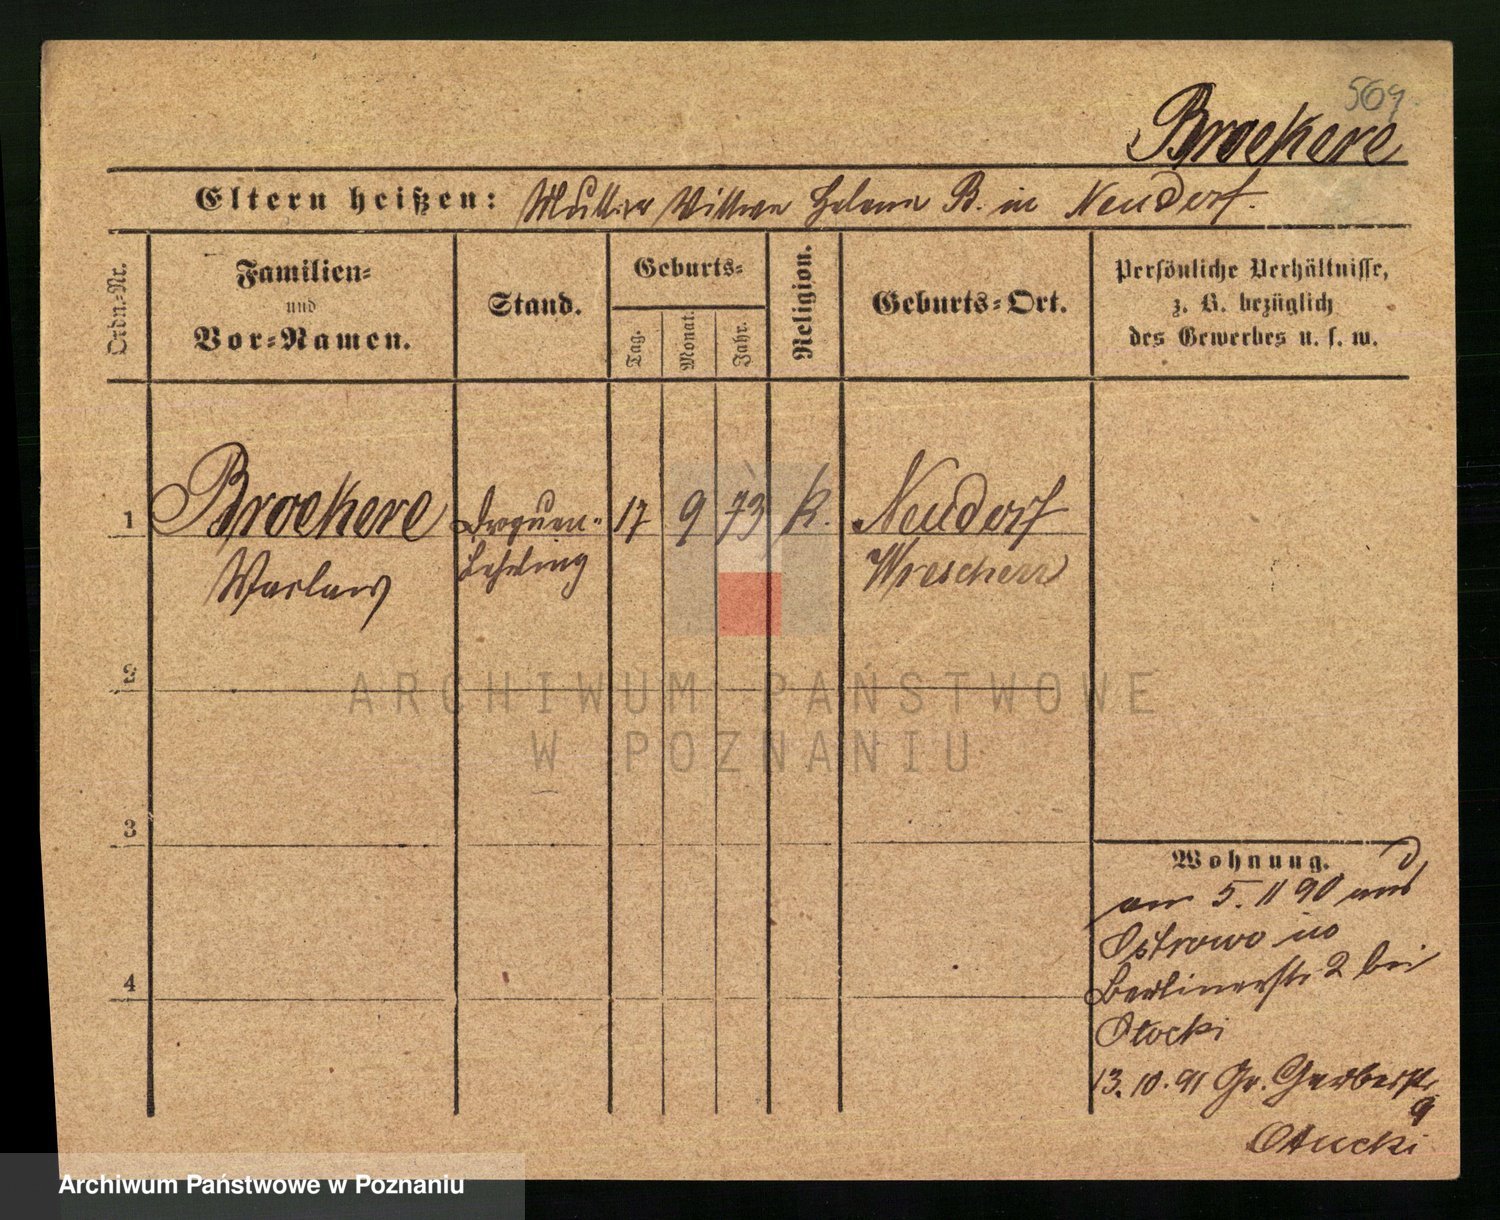 569.
Broekere
Eltern heißen: Mutter Wittwe Helena B. in Neudorf.
Ordn.-Nr.
Familien-
und
Vor-Namen.
Stand.
Geburts-
Tag.
Monat.
Jahr.
Religion.
Geburts-Ort.
Persönliche Verhältnisse,
z. B. bezüglich
des Gewerbes u. s. w.
1 Broekere Droguen- 17 9 73 k. Neudorf
Waclaw Lehrling Wreschen
2
3
4
Wohnung.
am 5. 11 90 aus
Ostrowo
Berlinerstr 2 bei
Otocki
13. 10. 91 Gr. Gerberstr.
9
Otucki
ARCHIWUM PAŃSTWOWE
W POZNANIU
Archiwum Państwowe w Poznaniu